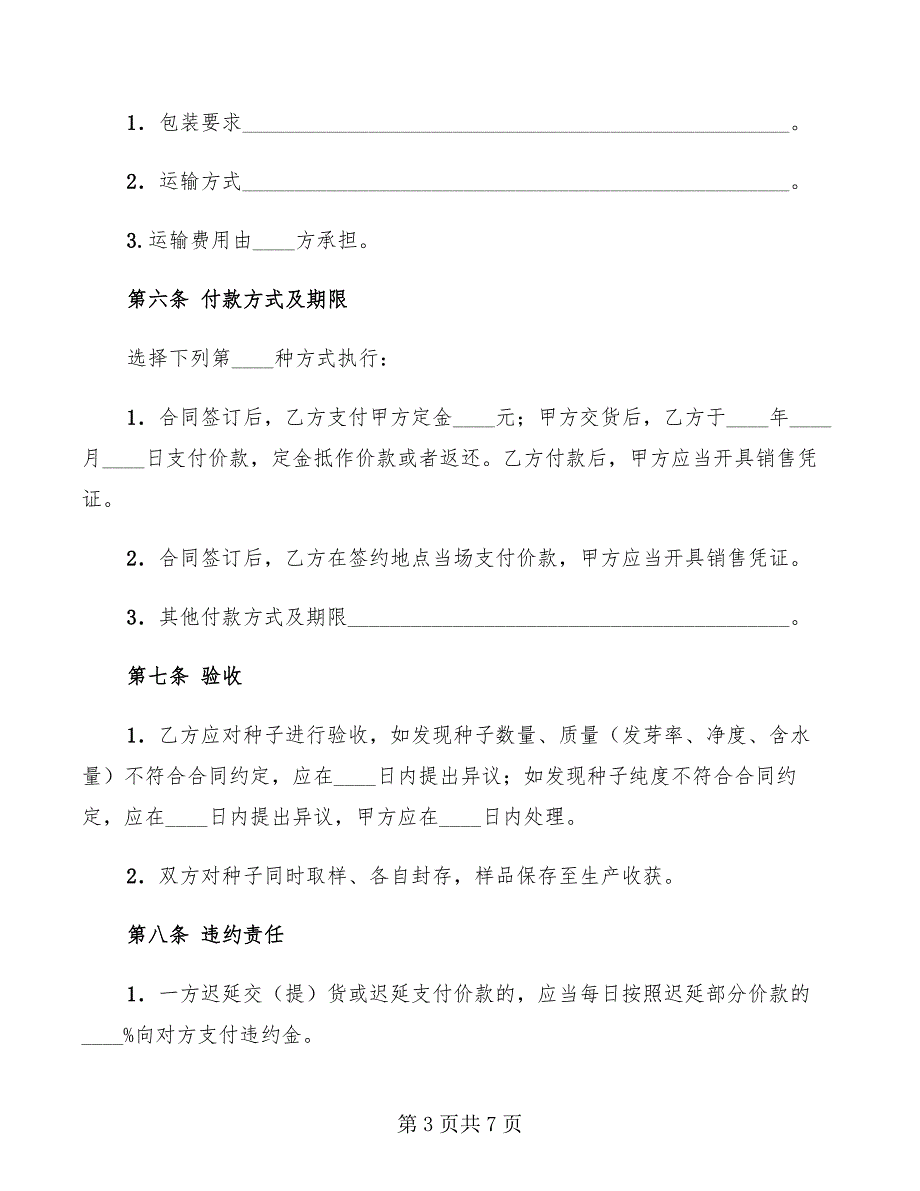 1．包装要求____________________________________________________。
2．运输方式____________________________________________________。
3.运输费用由____方承担。
第六条 付款方式及期限
选择下列第____种方式执行：
1．合同签订后，乙方支付甲方定金____元；甲方交货后，乙方于____年____
月____日支付价款，定金抵作价款或者返还。乙方付款后，甲方应当开具销售凭
证。
2．合同签订后，乙方在签约地点当场支付价款，甲方应当开具销售凭证。
3．其他付款方式及期限__________________________________________。
第七条 验收
1．乙方应对种子进行验收，如发现种子数量、质量（发芽率、净度、含水
量）不符合合同约定，应在____日内提出异议；如发现种子纯度不符合合同约
定，应在____日内提出异议，甲方应在____日内处理。
2．双方对种子同时取样、各自封存，样品保存至生产收获。
第八条 违约责任
1．一方迟延交（提）货或迟延支付价款的，应当每日按照迟延部分价款的
____%向对方支付违约金。
第 3 页共 7 页